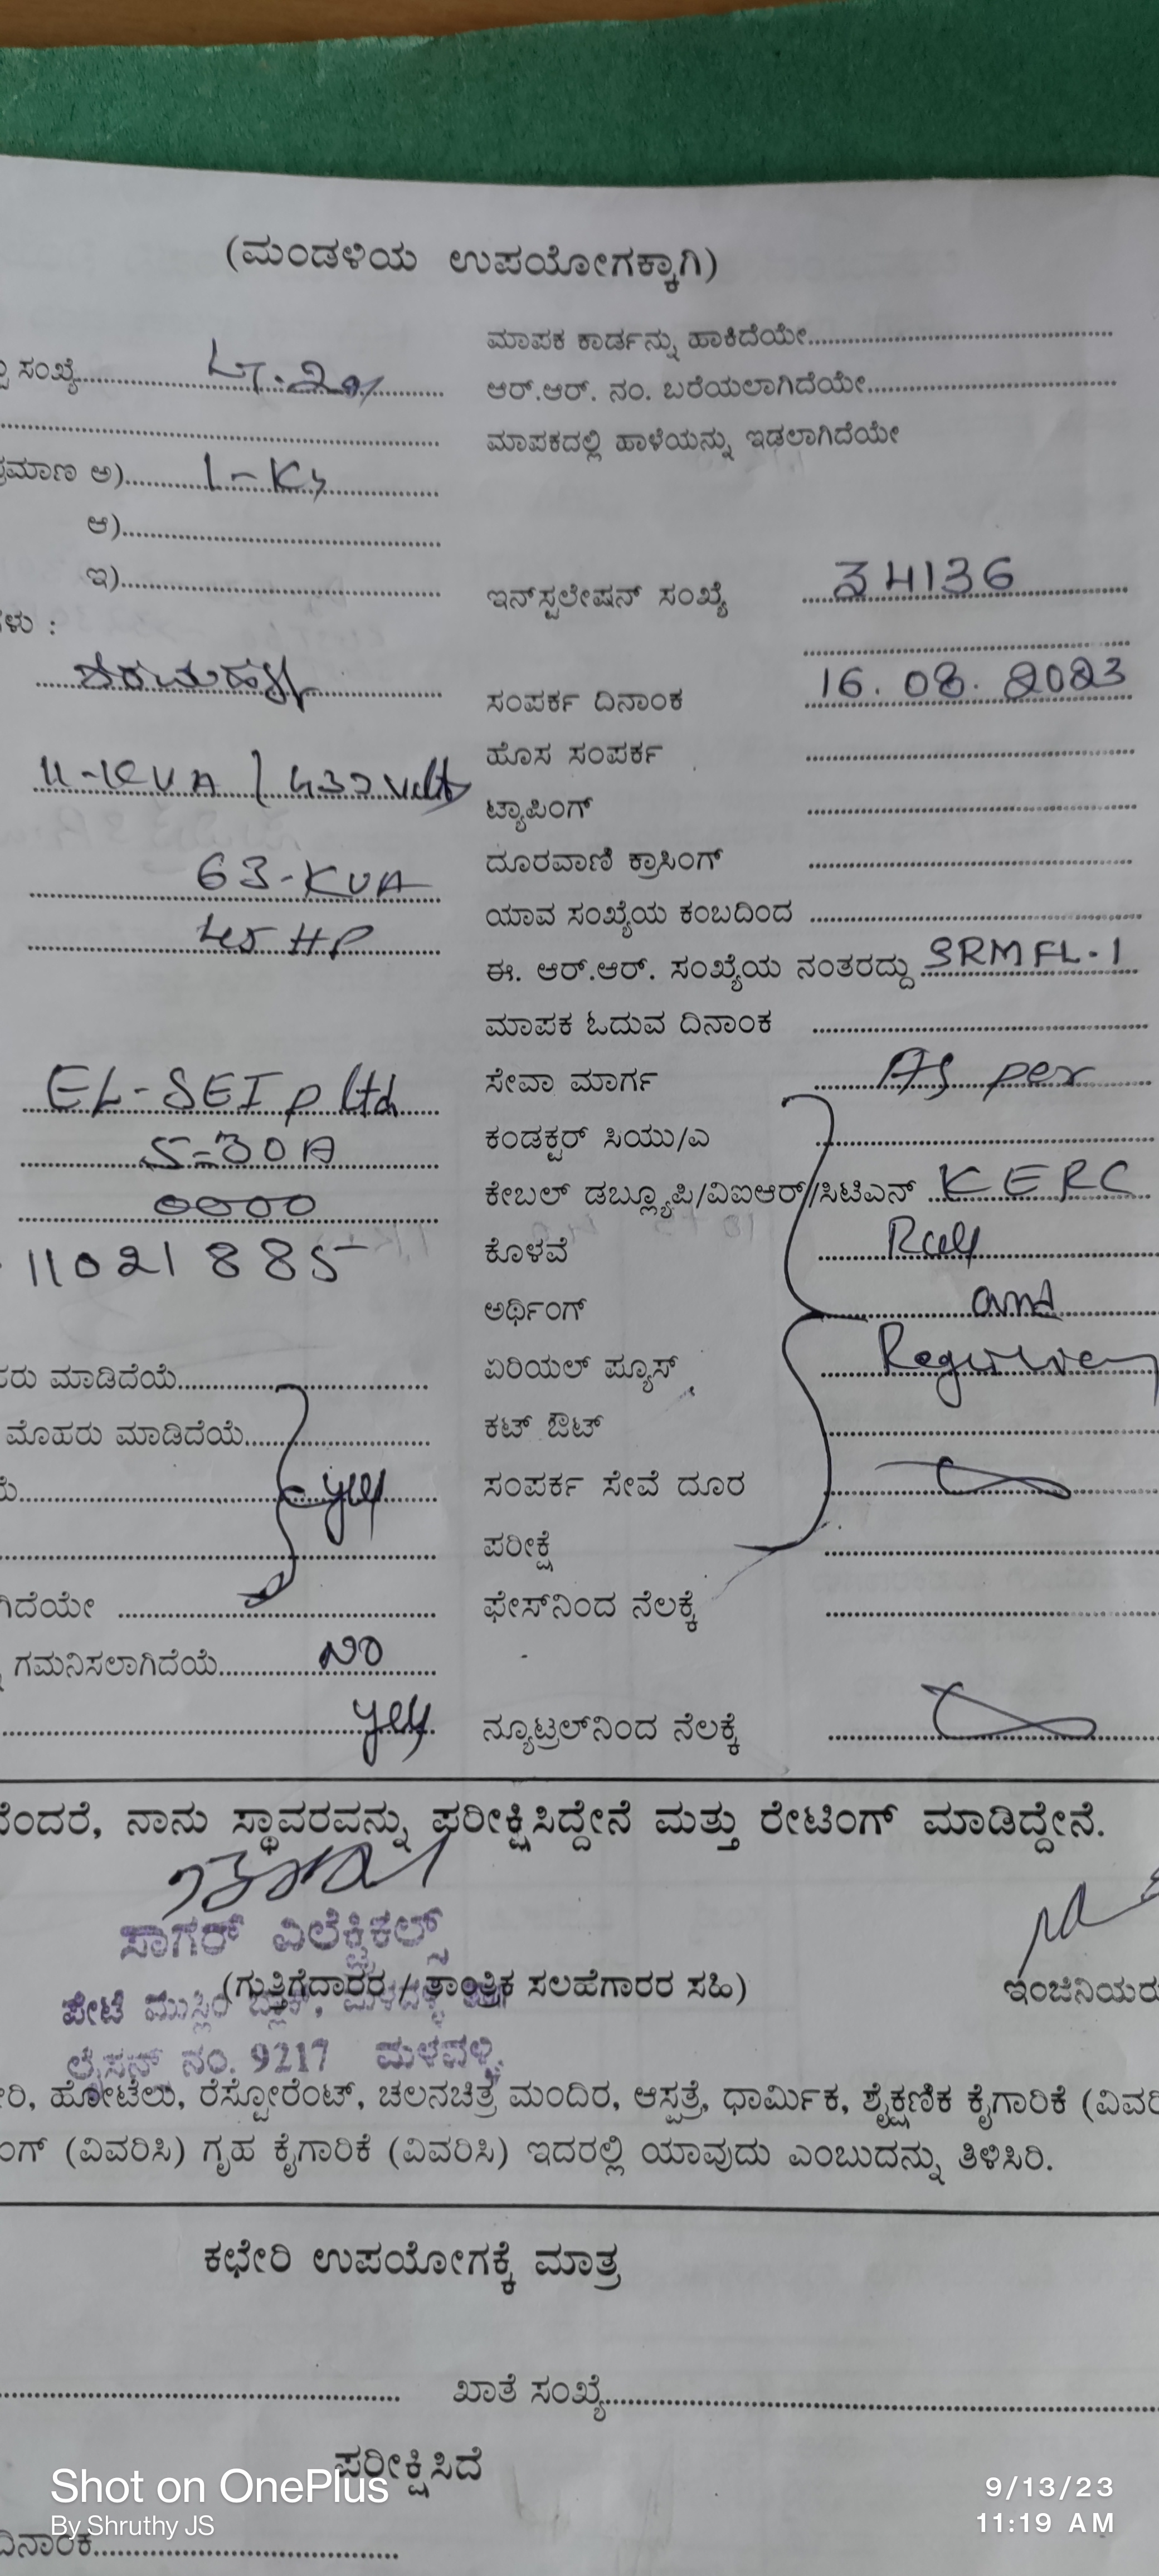 (ಮಂಡಳಿಯ ಉಪಯೋಗಕ್ಕಾಗಿ)
ಮಾಪಕ ಕಾರ್ಡನ್ನು ಹಾಕಿದೆಯೇ
ಸಂಖ್ಯೆ
ಆರ್.ಆರ್. ನಂ. ಬರೆಯಲಾಗಿದೆಯೇ
ಮಾಪಕದಲ್ಲಿ ಹಾಳೆಯನ್ನು ಇಡಲಾಗಿದೆಯೇ
ಅ)
ಆ)
ಇ)
ಇನ್‌ಸ್ಟಲೇಷನ್ ಸಂಖ್ಯೆ 34136
ಸಂಪರ್ಕ ದಿನಾಂಕ 16.08.2023
ಹೊಸ ಸಂಪರ್ಕ
ಟ್ಯಾಪಿಂಗ್
ದೂರವಾಣಿ ಕ್ರಾಸಿಂಗ್
63-KVA
ಯಾವ ಸಂಖ್ಯೆಯ ಕಂಬದಿಂದ
HP
ಈ. ಆರ್.ಆರ್. ಸಂಖ್ಯೆಯ ನಂತರದ್ದು SRMFL-1
ಮಾಪಕ ಓದುವ ದಿನಾಂಕ
EL-SEI P Ltd
ಸೇವಾ ಮಾರ್ಗ As per
5-30A
ಕಂಡಕ್ಟರ್ ಸಿಯು/ಎ
0000
ಕೇಬಲ್ ಡಬ್ಲ್ಯೂಪಿ/ವಿಐಆರ್/ಸಿಟಿಎನ್ KERC
11021885
ಕೊಳವೆ
ಅರ್ಥಿಂಗ್ and
ಮಾಡಿದೆಯೆ
ಏರಿಯಲ್ ಪ್ಯೂಸ್
ಮೊಹರು ಮಾಡಿದೆಯೆ
ಕಟ್ ಔಟ್
yes
ಸಂಪರ್ಕ ಸೇವೆ ದೂರ
ಪರೀಕ್ಷೆ
ಫೇಸ್‌ನಿಂದ ನೆಲಕ್ಕೆ
ಗಮನಿಸಲಾಗಿದೆಯೆ NO
yes
ನ್ಯೂಟ್ರಲ್‌ನಿಂದ ನೆಲಕ್ಕೆ
ನಾನು ಸ್ಥಾವರವನ್ನು ಪರೀಕ್ಷಿಸಿದ್ದೇನೆ ಮತ್ತು ರೇಟಿಂಗ್ ಮಾಡಿದ್ದೇನೆ.
ಸಾಗರ್ ಎಲೆಕ್ಟ್ರಿಕಲ್ಸ್
(ಗುತ್ತಿಗೆದಾರರ / ತಾಂತ್ರಿಕ ಸಲಹೆಗಾರರ ಸಹಿ)
ಇಂಜಿನಿಯರು
ಪೇಟೆ ಮುಸ್ಲಿಂ ಬ್ಲಾಕ್,
ಲೈಸನ್ಸ್ ನಂ. 9217 ಮಳವಳ್ಳಿ
ಹೋಟೆಲು, ರೆಸ್ಟೋರೆಂಟ್, ಚಲನಚಿತ್ರ ಮಂದಿರ, ಆಸ್ಪತ್ರೆ, ಧಾರ್ಮಿಕ, ಶೈಕ್ಷಣಿಕ ಕೈಗಾರಿಕೆ
(ವಿವರಿಸಿ) ಗೃಹ ಕೈಗಾರಿಕೆ (ವಿವರಿಸಿ) ಇದರಲ್ಲಿ ಯಾವುದು ಎಂಬುದನ್ನು ತಿಳಿಸಿರಿ.
ಕಛೇರಿ ಉಪಯೋಗಕ್ಕೆ ಮಾತ್ರ
ಖಾತೆ ಸಂಖ್ಯೆ
ಪರೀಕ್ಷಿಸಿದೆ
Shot on OnePlus
By Shruthy JS
9/13/23
11:19 AM
ದಿನಾಂಕ